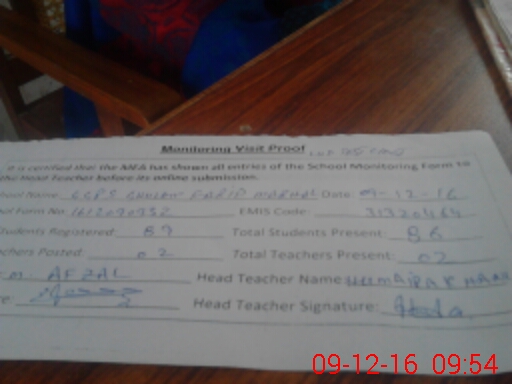 Monitoring Visit Proof
it is certified that the AEA has shown all entries of the School Monitoring Form to
the Head Teacher before its online submission.
School Name: GGPS GHULAM FARID Date: 09-12-16
Form No: EMIS Code:
Students Registered: 89 Total Students Present: 86
Teachers Posted: 02 Total Teachers Present: 02
M. AFZAL Head Teacher Name: HUMAIRA KHAN
Head Teacher Signature:
09-12-16 09:54